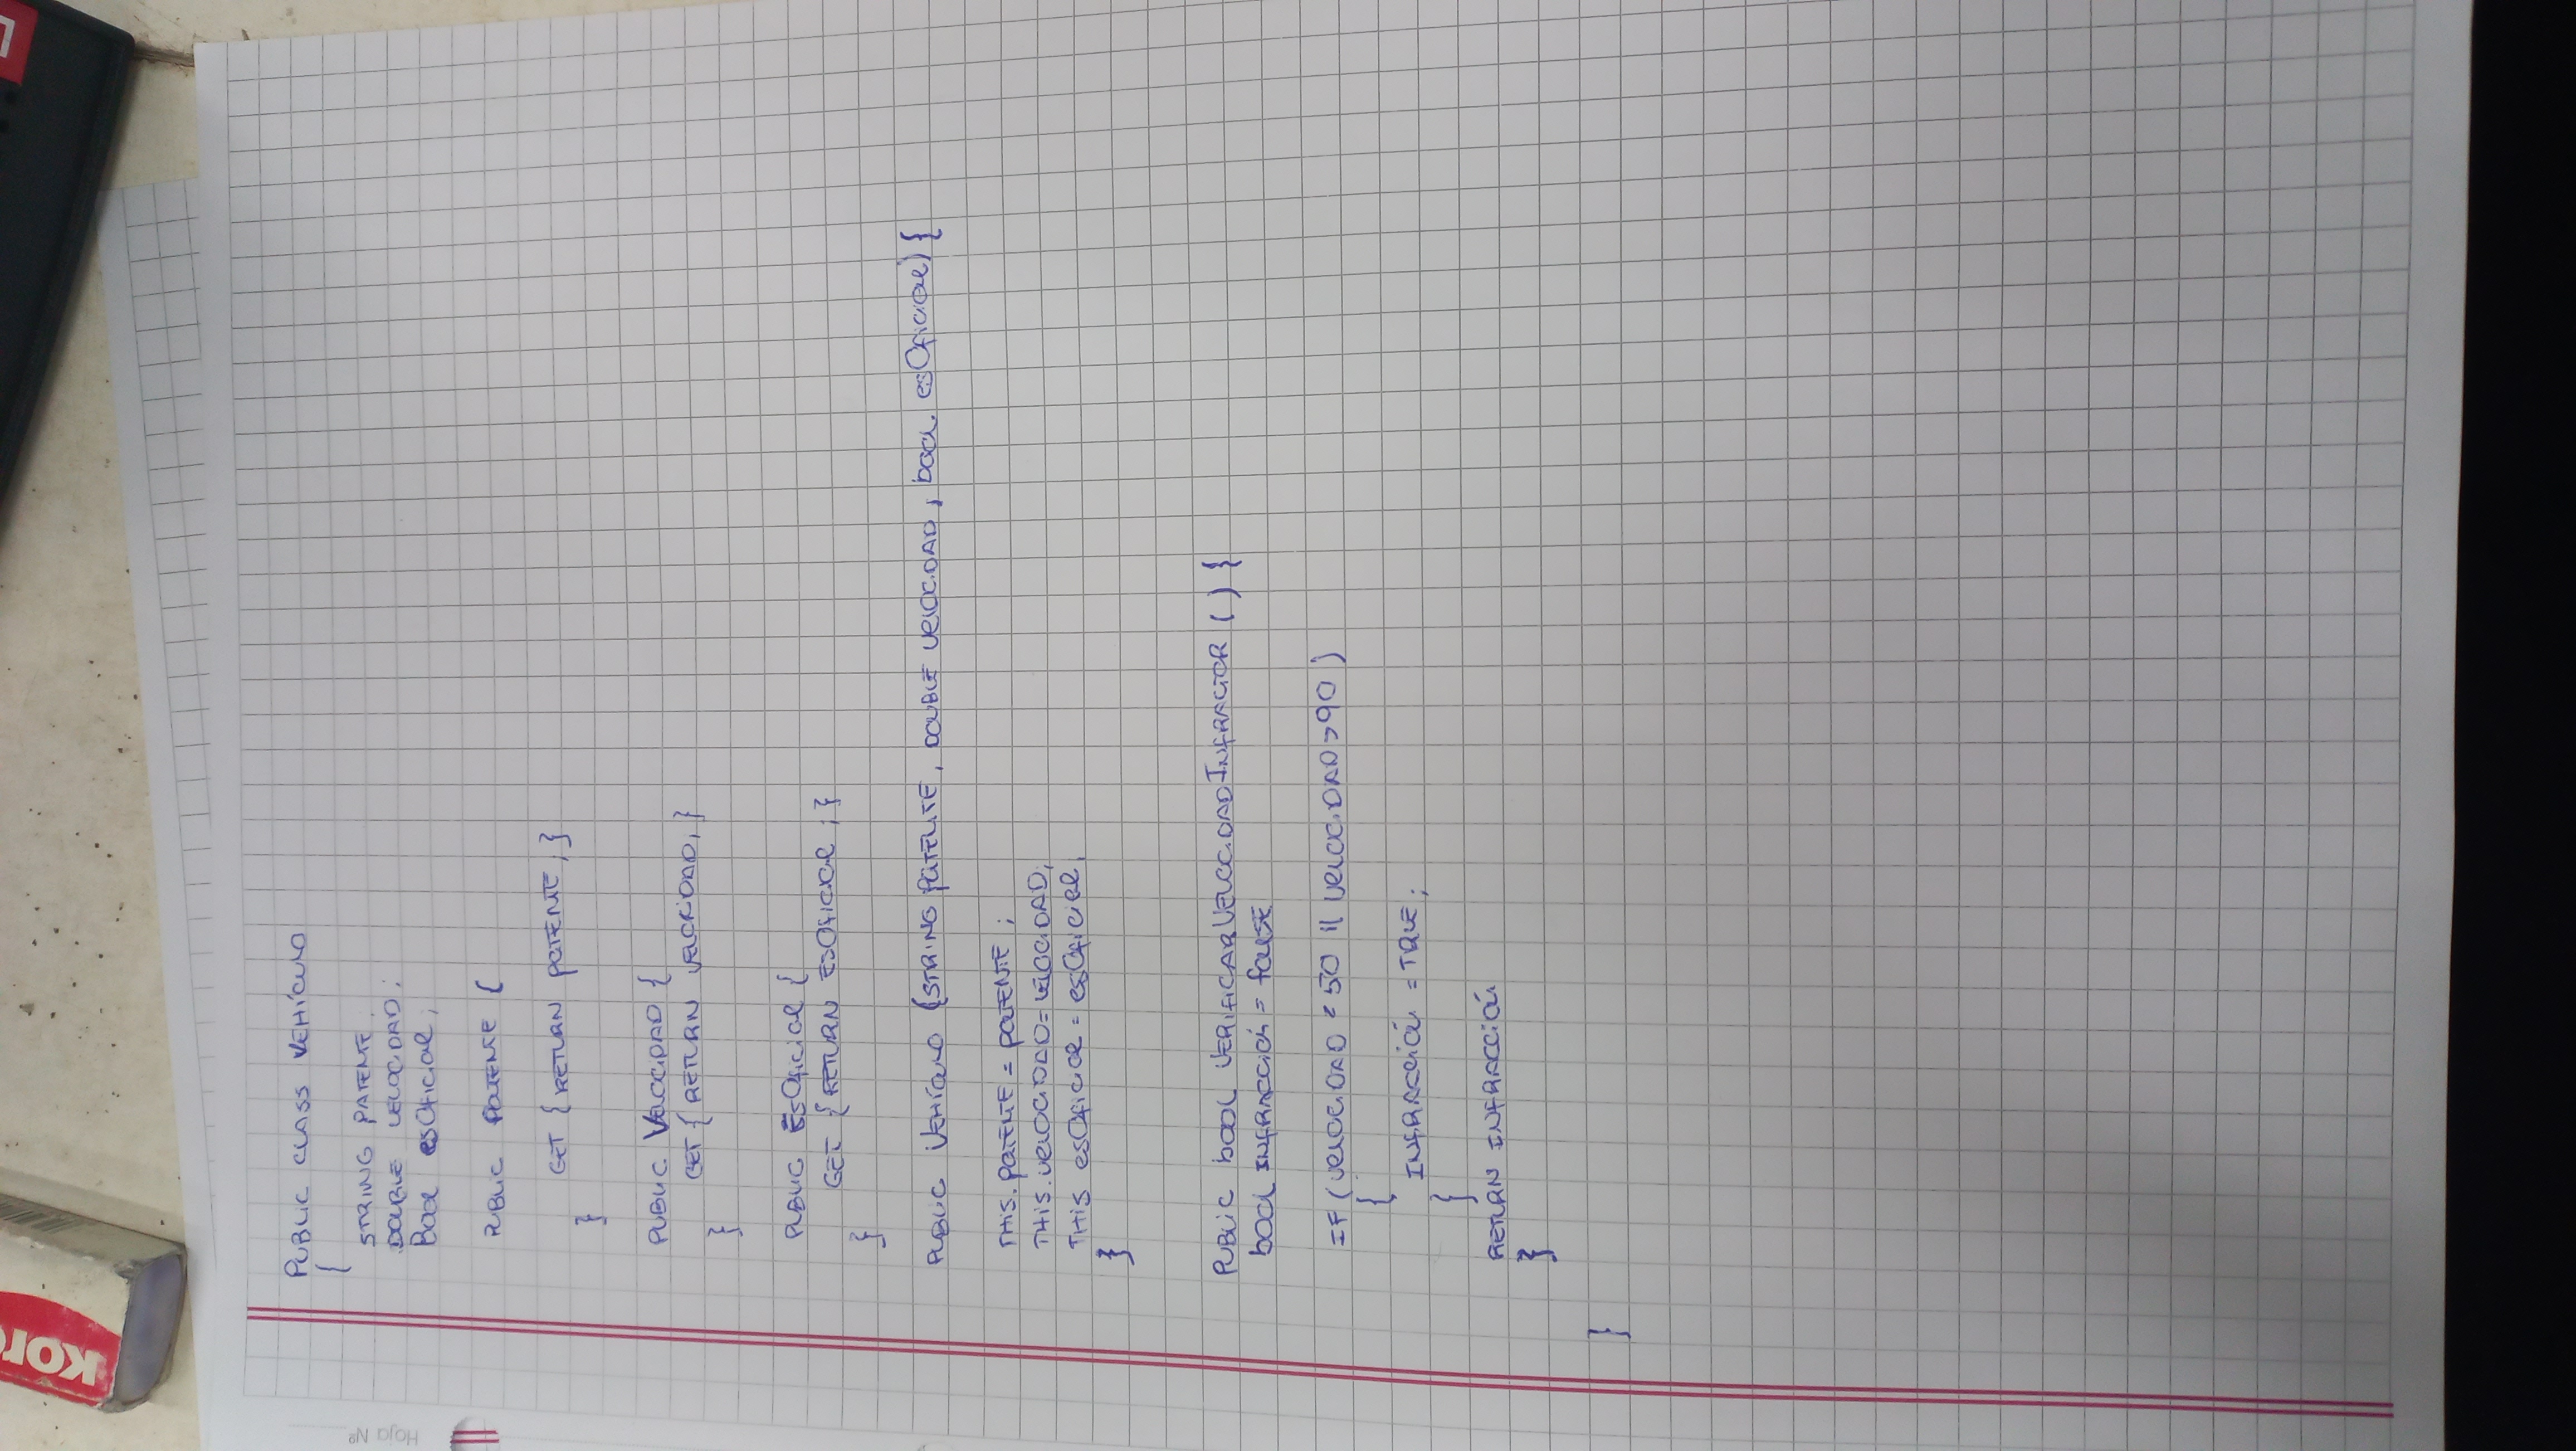 Kor
Hoja Nº
PUBLIC CLASS VEHÍCULO
{
STRING PATENTE.
DOUBLE VELOCIDAD;
Bool esOficial;
PUBLIC PATENTE {
GET {RETURN PATENTE;}
}
PUBLIC VELOCIDAD {
GET {RETURN VELOCIDAD;}
}
PUBLIC EsOficial {
GET {RETURN EsOficial;}
}
PUBLIC VEHÍCULO (STRING PATENTE, DOUBLE VELOCIDAD, bool esOficial) {
THIS.PATENTE = PATENTE;
THIS.VELOCIDAD = VELOCIDAD;
THIS esOficial = esOficial;
}
PUBLIC bool VERIFICARVELOCIDADINFRACTOR () {
bool INFRACCIÓN = FALSE
IF (VELOCIDAD < 50 || VELOCIDAD > 90)
{
INFRACCIÓN = TRUE;
}
RETURN INFRACCIÓN
}
}